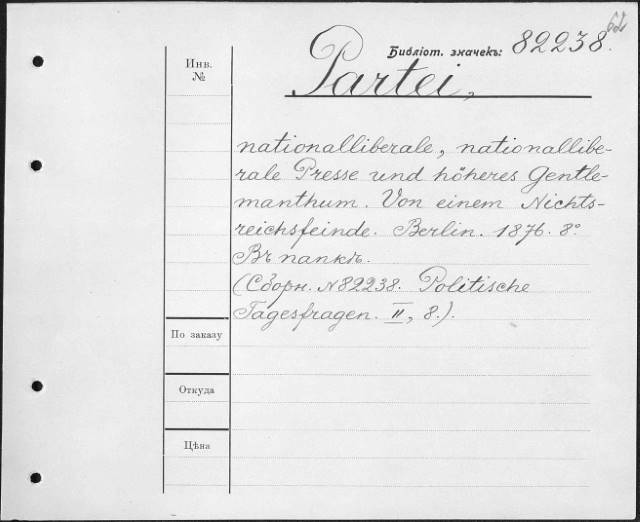 62
Библіот. значекъ: 82238.
Инв.
№
Partei,
nationalliberale, nationallibe-
rale Presse und höheres Gentle-
manthum. Von einem Nichts-
reichsfeinde. Berlin. 1876. 8°
Въ папкѣ.
(Сборн. №82238. Politische
Tagesfragen. II, 8.).
По заказу
Откуда
Цѣна